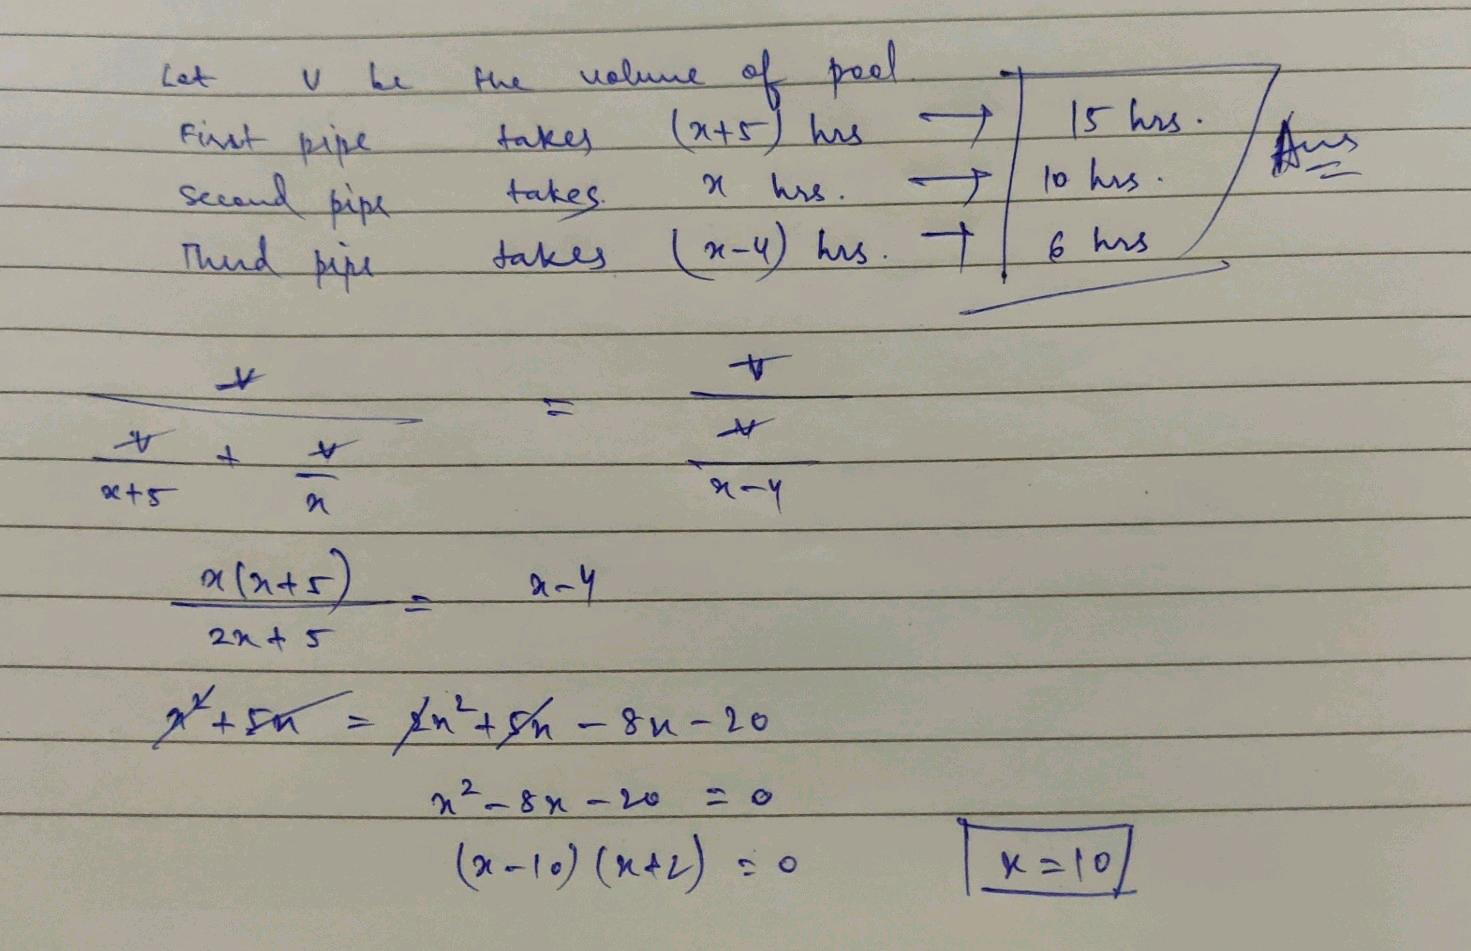 Let V be the volume of pool.
First pipe takes (x+5) hrs → 15 hrs.
Second pipe takes. x hrs. → 10 hrs. Ans
Third pipe takes (x-4) hrs. → 6 hrs
V / (V/(x+5) + V/x) = V / (V/(x-4))
x(x+5) / (2x+5) = x-4
x² + 5x = 2x² + 5x - 8x - 20
x² - 8x - 20 = 0
(x-10) (x+2) = 0 x=10